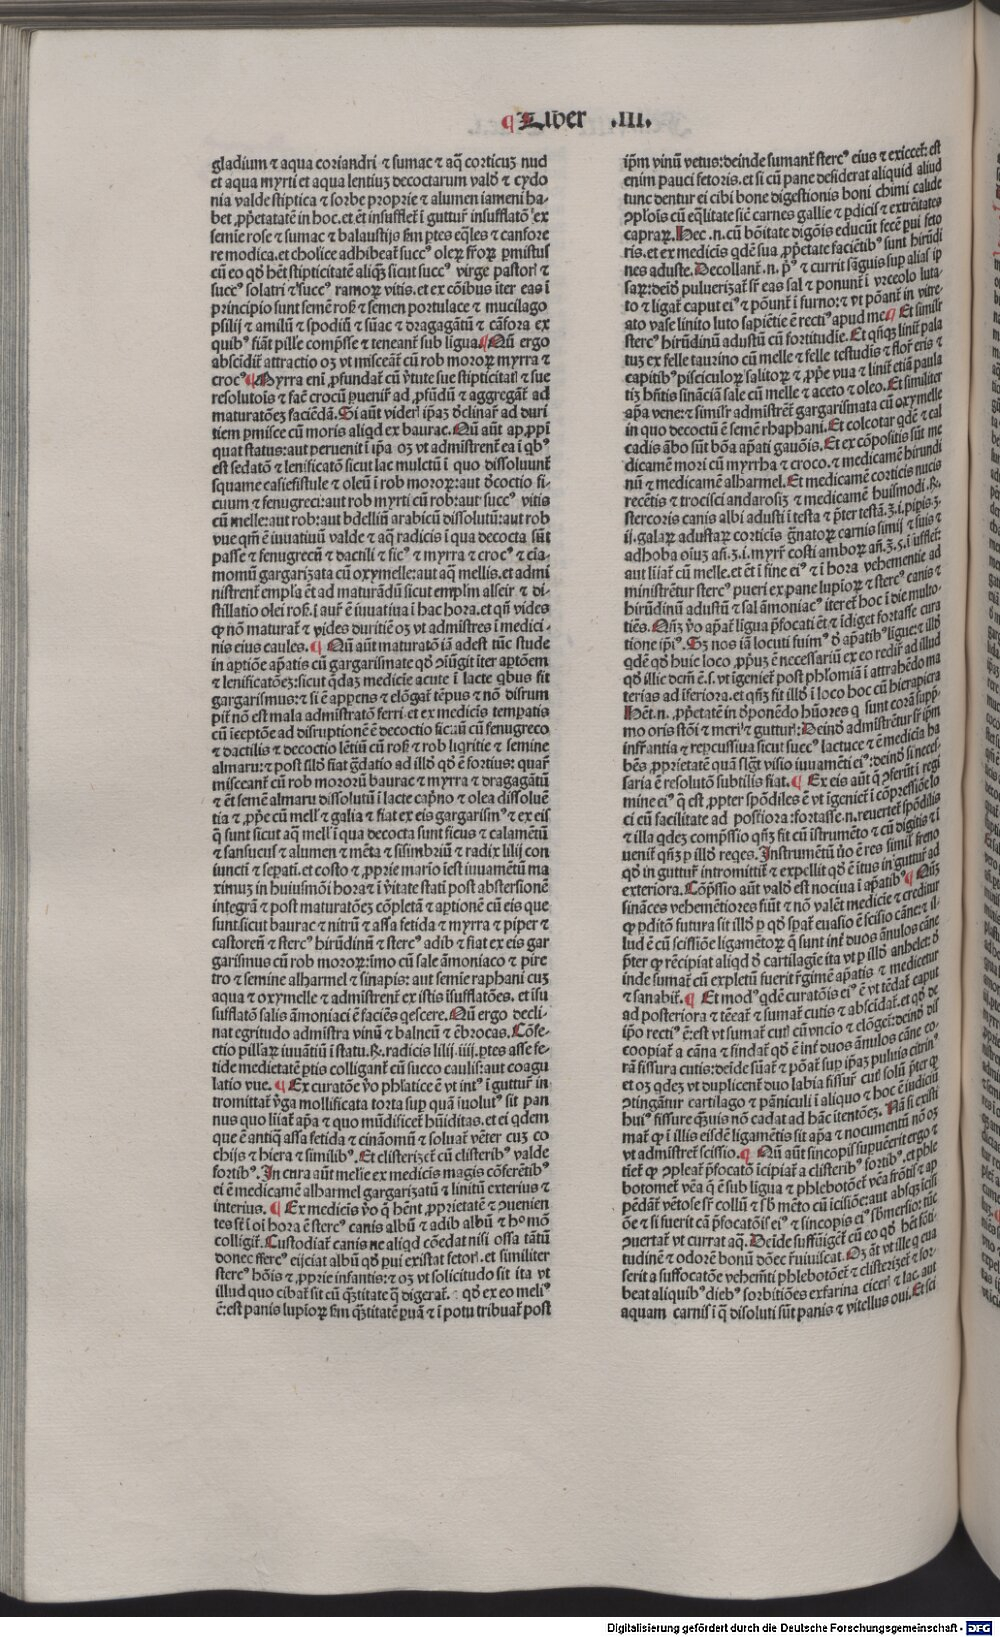 ¶ Liber .III.
gladium ⁊ aqua coriandri ⁊ sumac ⁊ aq̃ corticuz nud
et aqua myrti et aqua lentiuz decoctarum valđ ⁊ cydo
nia valde stiptica ⁊ sorbe proprie ⁊ alumen iameni ha-
bet ,ppẽtatẽ in hoc. et ẽt insufflet̃ ĩ guttur̃ insufflatõ ex
semie rose ⁊ sumac ⁊ balaustijs ſm ptes eq̃les ⁊ canfore
re modica. et cholice adhibeat̃ succ⁹
cũ eo qđ hẽt stipticitatẽ aliq̃ʒ sicut succ⁹ virge pastor̃ ⁊
succ⁹ solatri ⁊ succ⁹ ramoꝝ vitis. et ex cõibus iter eas ĩ
principio sunt semẽ ros̃ ⁊ semen portulace ⁊ mucilago
psilij ⁊ amilũ ⁊ spodiũ ⁊ sũac ⁊ dragagãtũ ⁊ cãfora ex
quib⁹ fiãt pille compsse ⁊ teneant̃ sub ligua. ¶ Nũ ergo
absciđit̃ attractio oʒ vt misceãt̃ cũ rob moroꝝ myrra ⁊
croc⁹ ¶ Myrra eni ,pfundat̃ cũ ṽtute sue stipticitat̃ ⁊ sue
resolutõis ⁊ facẽ crocũ puenir̃ ad ,pfũdũ ⁊ aggregat̃ ad
maturatõeʒ faciẽdã. Si aũt vider̃ ip̃aʒ đclinar̃ ad duri
tiem pmisce cũ moris aliqđ ex baurac. Nũ aũt ap,ppĩ
quat status: aut peruenit ĩ ip̃a oʒ vt admistrent̃ ea ĩ qb⁹
est sedatõ ⁊ lenificatõ sicut lac mulctũ ĩ quo dissoluunt̃
squame casiefistule ⁊ oleũ ĩ rob moroꝝ: aut đcoctio fi-
cuum ⁊ fenugreci: aut rob myrti cũ rob: aut succ⁹ vitis
cũ melle: aut rob: aut bdelliũ arabicũ dissolutũ: aut rob
vue qm̃ ẽ iuuatiuũ valde ⁊ aq̃ radicis ĩ qua decocta sũt
passe ⁊ fenugrecũ ⁊ dactili ⁊ fic⁹ ⁊ myrra ⁊ croc⁹ ⁊ cia-
momũ gargarizata cũ oxymelle: aut aq̃ mellis. et admi
nistrent̃ empla ẽt ad maturãdũ sicut emplm alseir ⁊ di-
stillatio olei ros̃. ĩ aur̃ ẽ iuuatiua ĩ hac hora. et qñ vides
ꝙ nõ maturat̃ ⁊ vides duritiẽ oʒ vt admistres ĩ medici-
nis eius caules. ¶ Nũ aũt maturatõ iã adest tũc stude
in aptiõe ap̃atis cũ gargarismate qđ ɔiũgit iter aptõem
⁊ lenificatõeʒ: sicut q̃daʒ medicie acute ĩ lacte qbus fit
gargarismus: ⁊ si ẽ appens ⁊ elõgat̃ tẽpus ⁊ nõ disrum
pit̃ nõ est mala admistratõ ferri. et ex medicis tempatis
cũ ĩceptõe ad disruptionẽ ẽ decoctio ficuũ cũ fenugreco
⁊ dactilis ⁊ decoctio lẽtiũ cũ ros̃ ⁊ rob liqritie ⁊ semine
almaru: ⁊ post illđ fiat g̃datio ad illđ qđ ẽ fortius: quar̃
misceant̃ cũ rob moroꝝ baurac ⁊ myrra ⁊ dragagãtũ
⁊ ẽt semẽ almaru dissolutũ ĩ lacte cap̃no ⁊ olea dissoluẽ
tia ⁊ ,ppe cũ mell̃ ⁊ galia ⁊ fiat ex eis gargarism⁹ ⁊ ex eis
q̃ sunt sicut aq̃ mell̃ ĩ qua decocta sunt ficus ⁊ calamẽtũ
⁊ sansucus̃ ⁊ alumen ⁊ mẽta ⁊ sisimbriũ ⁊ radix lilij con
iuncti ⁊ sepati. et costo ⁊ ,pprie mario iest iuuamẽtũ ma
ximuʒ in huiusmõi hora ⁊ ĩ ṽitate stati post abstersionẽ
integrã ⁊ post maturatõeʒ cõpletã ⁊ aptionẽ cũ eis que
sunt sicut baurac ⁊ nitrũ ⁊ assa fetida ⁊ myrra ⁊ piper ⁊
castoreũ ⁊ sterc⁹ hirũdinũ ⁊ sterc⁹ adib ⁊ fiat ex eis gar
garismus cũ rob moroꝝ: ĩmo cũ sale ãmoniaco ⁊ pire
tro ⁊ semine alharmel ⁊ sinapis: aut semie raphani cuʒ
aqua ⁊ oxymelle ⁊ admistrent̃ ex istis ĩsufflatões. et ĩsu
sufflatõ salis ãmoniaci ẽ faciẽs qescere. Nũ ergo decli-
nat egritudo admistra vinũ ⁊ balneũ ⁊ ẽbrocas. Cõfe-
ctio pillaꝝ iuuãtiũ ĩ statu. ℞. radicis lilij .iiij. ptes asse fe-
tide medietatẽ ptis colligant̃ cũ succo caulis: aut coagu
latio vue. ¶ Ex curatõe ṽo phlatice ẽ vt int⁹ ĩ guttur̃ in
tromittat̃ ṽga mollificata torta sup quã ĩuolut⁹ sit pan
nus quo liiat̃ ap̃a ⁊ quo mũdificet̃ hũiditas. et ei qdem
que ẽ antiq̃ assa fetida ⁊ cinãomũ ⁊ soluat̃ vẽter cuʒ co
chijs ⁊ hiera ⁊ similib⁹. Et clisterizet̃ cũ clisterib⁹ valde
fortib⁹. In cura aũt melie ex medicis magis cõferẽtib⁹
ei ẽ medicamẽ alharmel gargarizatũ ⁊ linitũ exterius ⁊
interius. ¶ Ex medicis ṽo q̃ hẽnt ,pprietatẽ ⁊ ɔuenien
tes sr̃ ĩ oi hora ẽ sterc⁹ canis albũ ⁊ adib albũ ⁊ ho⁹ mõ
colligit̃. Custodiat̃ canis ne aliqđ cõedat nisi ossa tãtũ
donec sterc⁹ eijciat albũ qđ pui existat fetor̃. et similiter
sterc⁹ hõis ⁊ ,pprie infantis: ⁊ oʒ vt solicitudo sit ita vt
illud quo cibat̃ sit cũ q̃ʒtitate q̃ digerat̃. qđ ex eo meli⁹
ẽ: est panis lupinoꝝ ſm q̃ʒtitatẽ puã ⁊ ĩ potu tribuat̃ post
ip̃m vinũ vetus: deinde sumant̃ sterc⁹ eius ⁊ exiccet̃: est
enim pauci fetoris. et si cũ pane desiderat aliquid aliud
tunc dentur ei cibi bone digestionis boni chimi calide
ɔplõis cũ eq̃litate sic̃ carnes gallie ⁊ pdicis̃ ⁊ extrẽitates
capraꝝ. Hec .n. cũ bõitate digõis educũt fecẽ pui feto
ris. et ex medicis qdẽ sua ,ppẽtate faciẽtib⁹ sunt hirũdi
nes aduste. Decollant̃ .n. p⁹ ⁊ currit sãguis sup alas ip
saꝝ: deiđ puluerizat̃ sr̃ eas sal ⁊ ponunt̃ ĩ vrceolo luta-
to ⁊ ligat̃ caput ei⁹ ⁊ põunt̃ ĩ furno: ⁊ vt põant̃ in vitre-
ato vase linito luto sapiẽtie ẽ recti⁹ apud me. ¶ Et similr̃
sterc⁹ hirũdinũ adustũ cũ fortitudie. Et qñqʒ linit̃ pala
tuʒ ex felle taurino cũ melle ⁊ felle testudis ⁊ flor̃ eris ⁊
capitib⁹ pisciculoꝝ salitoꝝ ⁊ ,ppe vua ⁊ linit̃ etiã paula
tiʒ hñtis sinãciã sale cũ melle ⁊ aceto ⁊ oleo. Et similiter
ap̃a vene: ⁊ similr̃ admistrẽt̃ gargarismata cũ oxymelle
in quo decoctũ ẽ semẽ rhaphani. Et colcotar qdẽ ⁊ cal
cadis ãbo sũt bõa ap̃ati gauõis. Et ex cõpositis sũt me
dicamẽ mori cũ myrrha ⁊ croco. ⁊ medicamẽ hirundi
nũ ⁊ medicamẽ alharmel. Et medicamẽ corticis nucis
recẽtis ⁊ trocisci andarosiʒ ⁊ medicamẽ huiusmodi .℞.
stercoris canis albi adusti ĩ testa ⁊ pter testã.ʒ.i. pipis.ʒ.
ij. galaꝝ adustaꝝ corticis g̃natoꝝ carnis simij ⁊ suis ⁊
adhoba oiuʒ añ.ʒ.i. myrr̃ costi amboꝝ añ.ʒ.s. ĩ ufflet̃
aut liiat̃ cũ melle. et ẽt ĩ fine ei⁹ ⁊ ĩ hora vehementie ad
ministrẽtur sterc⁹ pueri ex pane lupioꝝ ⁊ sterc⁹ canis ⁊
hirũdinũ adustũ ⁊ sal ãmoniac⁹ iteret̃ hoc ĩ die multo-
tiẽs. Qñʒ ṽo ap̃at̃ ligua p̃focati ẽt ⁊ ĩdiget fortasse cura
tione ip̃i⁹. Sʒ nos iã locuti fuim⁹ đ ap̃atib⁹ ligue: ⁊ illđ
qdẽ qđ huic loco ,ppuʒ ẽ necessariũ ex eo redir̃ ad illud
qđ illic dcm̃ ẽ .s. vt ĩgeniet̃ post phlomiã ĩ attrahẽdo ma
terias ad iferiora. et qñʒ fit illđ ĩ loco hoc cũ hierapicra
Hẽt .n. ,ppẽtatẽ in đponẽdo hũores q̃ sunt corã supp̃-
mo oris stõi ⁊ meri⁹ ⁊ guttur̃: Deinđ admistrẽtur sr̃ ip̃m
infr̃antia ⁊ repcussiua sicut succ⁹ lactuce ⁊ ẽ medicia ha
bẽs ,pprietatẽ quã sigt̃ visio iuuamẽti ei⁹: deinđ si neces-
saria ẽ resolutõ subtilis fiat. ¶ Ex eis aũt q̃ ɔferũt ĩ regi
mine ei⁹ q̃ est ,ppter spõdiles ẽ vt ĩgeniet̃ ĩ cõpressiõe lo
ci eũ facilitate ad postiora: fortasse .n. reuertet̃ spõdilis
⁊ illa qdeʒ compssio qñʒ fit cũ ĩstrumẽto ⁊ cũ digitis ⁊ ĩ
uenit̃ qñʒ p illđ reqes. Instrumẽtũ ṽo ẽ res simil̃ freno
qđ in guttur̃ intromittit̃ ⁊ expellit qđ ẽ ĩtus in guttur̃ ad
exteriora. Cõpssio aũt valđ est nociua ĩ ap̃atib⁹ ¶ Nũʒ
sinãces vehemẽtiores fiũt ⁊ nõ valẽt medicie ⁊ creditur
ꝙ pditõ futura sit illđ p qđ spat̃ euasio ẽ scisio cãne: ⁊ il-
lud ẽ cũ scissiõe ligamẽtoꝝ q̃ sunt int̃ duos ãnulos cãne
pter ꝙ recipiat aliqđ đ cartilagie ita vt p illđ anhelet: đ
inde sumat̃ cũ expletũ fuerit r̃gimẽ ap̃atis ⁊ medicetur
⁊ sanabit̃. ¶ Et mod⁹ qdẽ curatõis ei⁹ ẽ vt tẽdat̃ caput
ad posteriora ⁊ tẽeat̃ ⁊ sumat̃ cutis ⁊ abscidat̃. et qđ đ
ip̃o recti⁹ ẽ: est vt sumat̃ cut̃ cũ vncio ⁊ elõget̃: deinđ dis
coopiat̃ a cãna ⁊ findat̃ qđ ẽ int̃ duos ãnulos cãne co-
rã fissura cutis: deĩde sũat̃ ⁊ põat̃ sup ip̃aʒ puluis citrin⁹
et oʒ qdeʒ vt duplicent̃ duo labia fissur̃ cut̃ solũ pter ꝙ
ɔtingãtur cartilago ⁊ pãniculi ĩ aliquo ⁊ hoc ẽ ĩdiciũ
hui⁹ fissure q̃ʒuis nõ cadat ad hãc itentõeʒ. Nã si existi
mat̃ ꝙ ĩ illis eisdẽ ligamẽtis sit ap̃a ⁊ nocumentũ nõ oʒ
vt admistret̃ scissio. ¶ Nũ aũt sincopis supuẽerit ergo ⁊
tiet̃ ꝙ ɔpleat̃ p̃focatõ ĩcipiat̃ a clisterib⁹ fortib⁹. et phle
botomet̃ vẽa q̃ ẽ sub ligua ⁊ phlebotõet̃ vẽa frõtis̃ ⁊ ap
pẽdãt̃ vẽtose sr̃ collũ ⁊ sb̃ mẽto cũ ĩcisiõe: aut absqʒ icisi
õe ⁊ si fuerit cã p̃focatõis̃ ei⁹ ⁊ sincopis ei⁹ sb̃mersio: tũc
ɔuertat̃ vt currat aq̃. Deĩde suffũiget̃ cũ eo qđ hẽt fõti-
tudinẽ ⁊ odorẽ bonũ dõec r̃uiuiscat. Oʒ ãt vt ille q̃ eua
serit a suffocatõe vehem̃ti phlebotõet̃ ⁊ clisterizet̃ ⁊ sor-
beat aliquib⁹ dieb⁹ sorbitiões ex farina cicer̃ ⁊ lac. aut
aquam carnis ĩ q̃ disoluti sũt panis ⁊ vitellus oui. Et sci
Digitalisierung gefördert durch die Deutsche Forschungsgemeinschaft - DFG